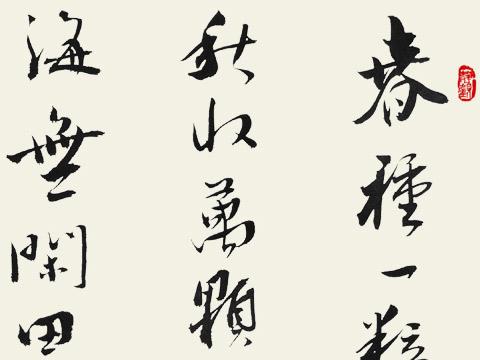 春種一粒
秋收萬顆
海無閑田